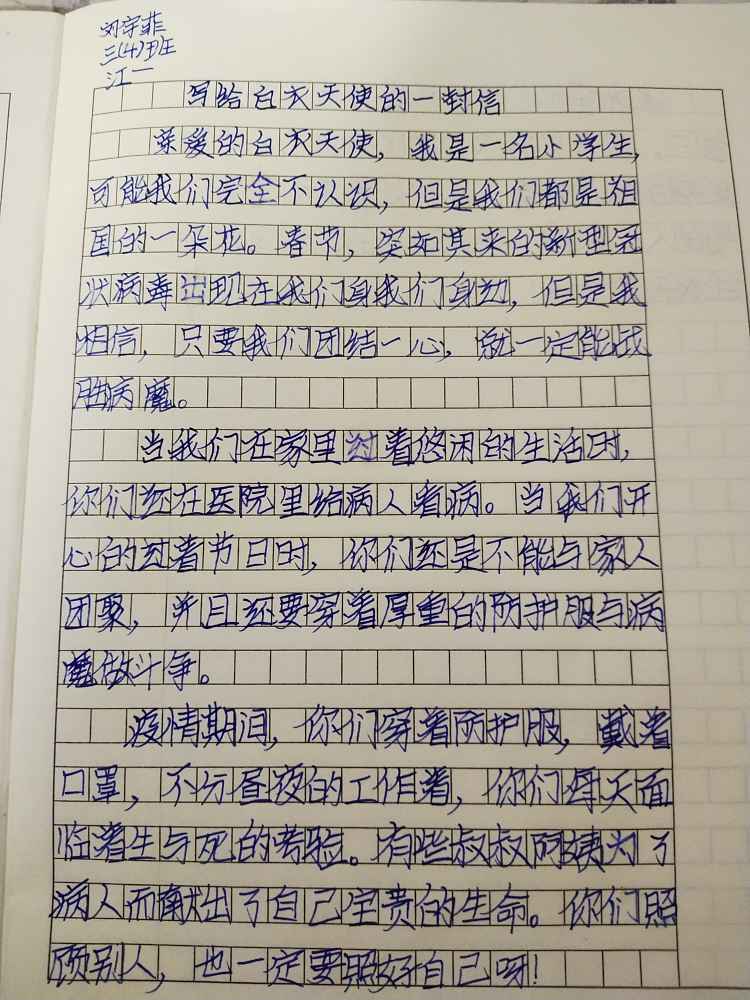 刘宇菲
三(4)班
江一
写给白衣天使的一封信
亲爱的白衣天使，我是一名小学生，
可能我们完全不认识，但是我们都是祖
国的一朵花。春节，突如其来的新型冠
状病毒出现在我们身我们身边，但是我
相信，只要我们团结一心，就一定能战
胜病魔。
当我们在家里过着悠闲的生活时，
你们还在医院里给病人看病。当我们开
心的过着节日时，你们还是不能与家人
团聚，并且还要穿着厚重的防护服与病
魔做斗争。
疫情期间，你们穿着防护服，戴着
口罩，不分昼夜的工作着，你们每天面
临着生与死的考验。有些叔叔阿姨为了
病人而献出了自己宝贵的生命。你们照
顾别人，也一定要照好自己呀！